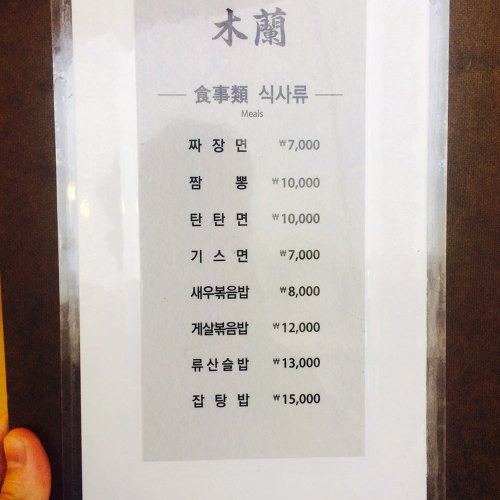 木蘭
食事類 식사류
Meals
짜장면 ₩7,000
짬뽕 ₩10,000
탄탄면 ₩10,000
기스면 ₩7,000
새우볶음밥 ₩8,000
게살볶음밥 ₩12,000
류산슬밥 ₩13,000
잡탕밥 ₩15,000